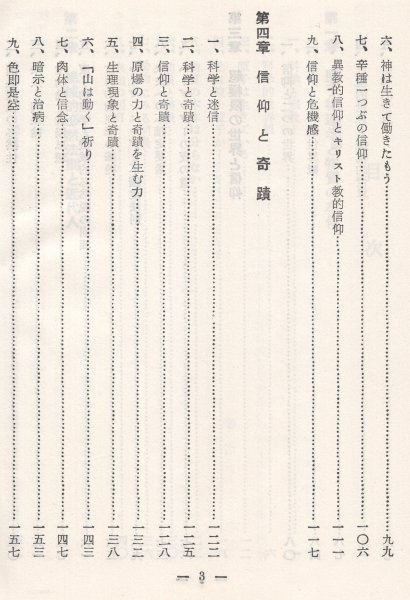 六、神は生きて働きたもう……九九
七、辛種一つぶの信仰……一〇六
八、異教的信仰とキリスト教的信仰……一一一
九、信仰と危機感……一一七
第四章 信仰と奇蹟
一、科学と迷信……一二二
二、科学と奇蹟……一二五
三、信仰と奇蹟……一二八
四、原爆の力と奇蹟を生む力……一三二
五、生理現象と奇蹟……一三八
六、「山は動く」祈り……一四三
七、肉体と信念……一四七
八、暗示と治病……一五三
九、色即是空……一五七
— 3 —